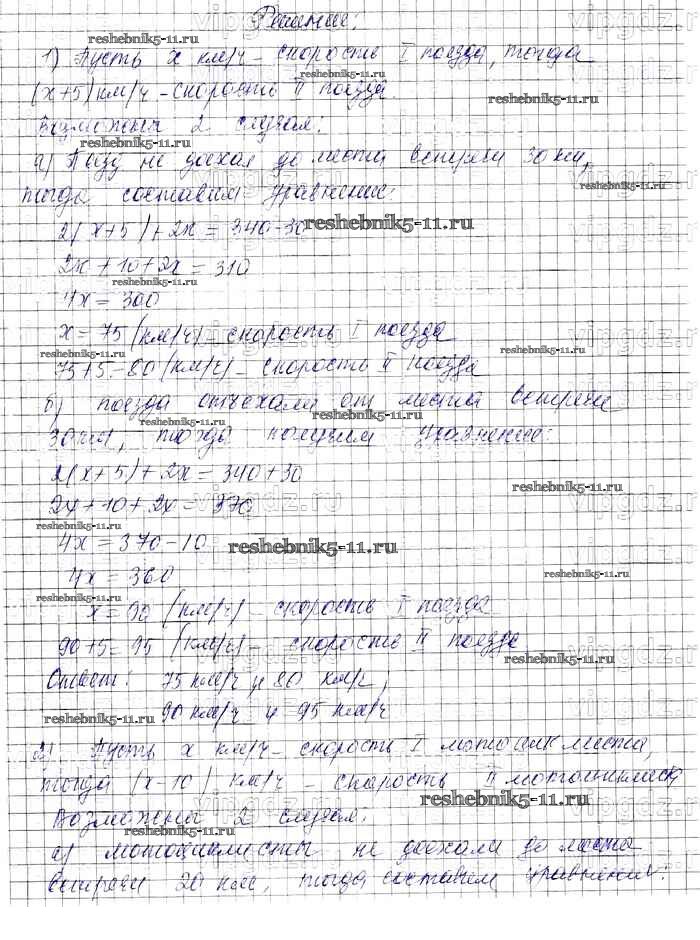 Решение:
1) Пусть x км/ч – скорость I поезда, тогда
(x+5) км/ч – скорость II поезда.
Возможны 2 случая:
а) Поезда не доехали до места встречи 30 км,
тогда составим уравнение:
2(x+5)+2x = 340-30
2x+10+2x = 310
4x = 300
x = 75 (км/ч) – скорость I поезда
75+5=80 (км/ч) – скорость II поезда
б) поезда отъехали от места встречи
30 км, тогда получим уравнение:
2(x+5)+2x = 340+30
2x+10+2x = 370
4x = 370-10
4x = 360
x = 90 (км/ч) – скорость I поезда
90+5=95 (км/ч) – скорость II поезда
Ответ: 75 км/ч и 80 км/ч,
90 км/ч и 95 км/ч
2) Пусть x км/ч – скорость I мотоциклиста,
тогда (x-10) км/ч – скорость II мотоциклиста
Возможны 2 случая:
а) мотоциклисты не доехали до места
встречи 20 км, тогда составим уравнение:
reshebnik5-11.ru
vipgdz.ru